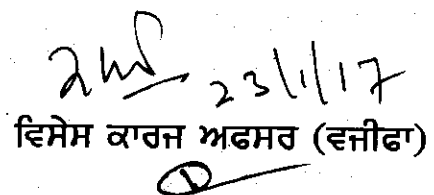 23/1/17
ਵਿਸੇਸ ਕਾਰਜ ਅਫਸਰ (ਵਜੀਫਾ)